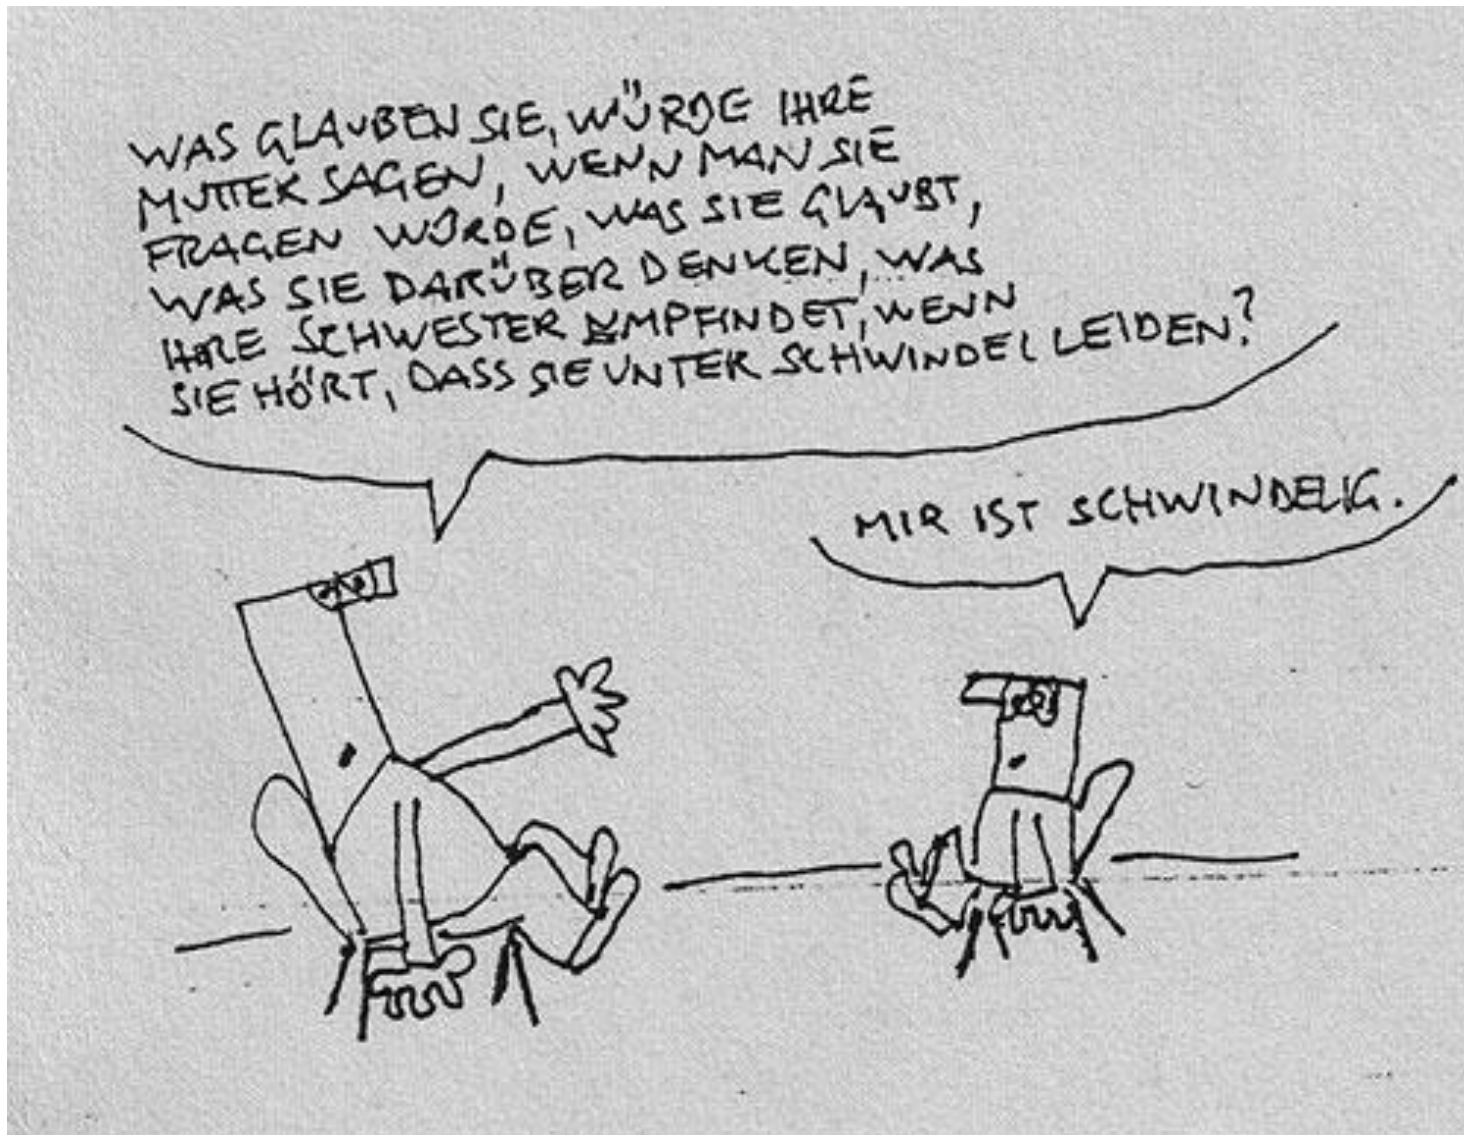 WAS GLAUBEN SIE, WÜRDE IHRE
MUTTER SAGEN, WENN MAN SIE
FRAGEN WÜRDE, WAS SIE GLAUBT,
WAS SIE DARÜBER DENKEN, WAS
IHRE SCHWESTER EMPFINDET, WENN
SIE HÖRT, DASS SIE UNTER SCHWINDEL LEIDEN?
MIR IST SCHWINDELIG.